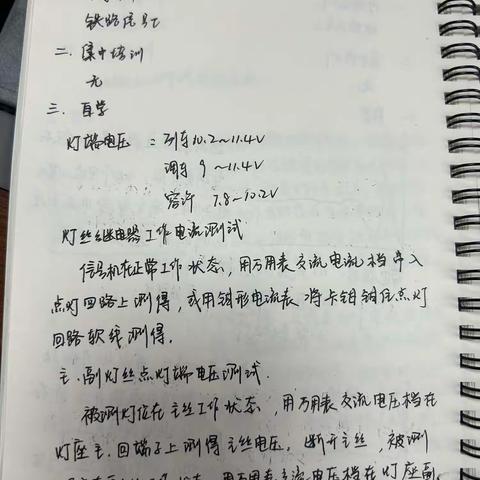 铁路信号工
二、集中培训
无
三、自学
灯端电压：列车10.2～11.4V
调车 9～11.4V
容许 7.8～10.2V
灯丝继电器工作电流测试
信号机在正常工作状态，用万用表交流电流档串入
点灯回路上测得，或用钳形电流表将卡钳钳住点灯
回路软线测得。
主.副灯丝点灯端电压测试.
被测灯位在主丝工作状态，用万用表交流电压档在
灯座主.回端子上测得主丝电压，断开主丝，被测
用万用表交流电压档在灯座副.